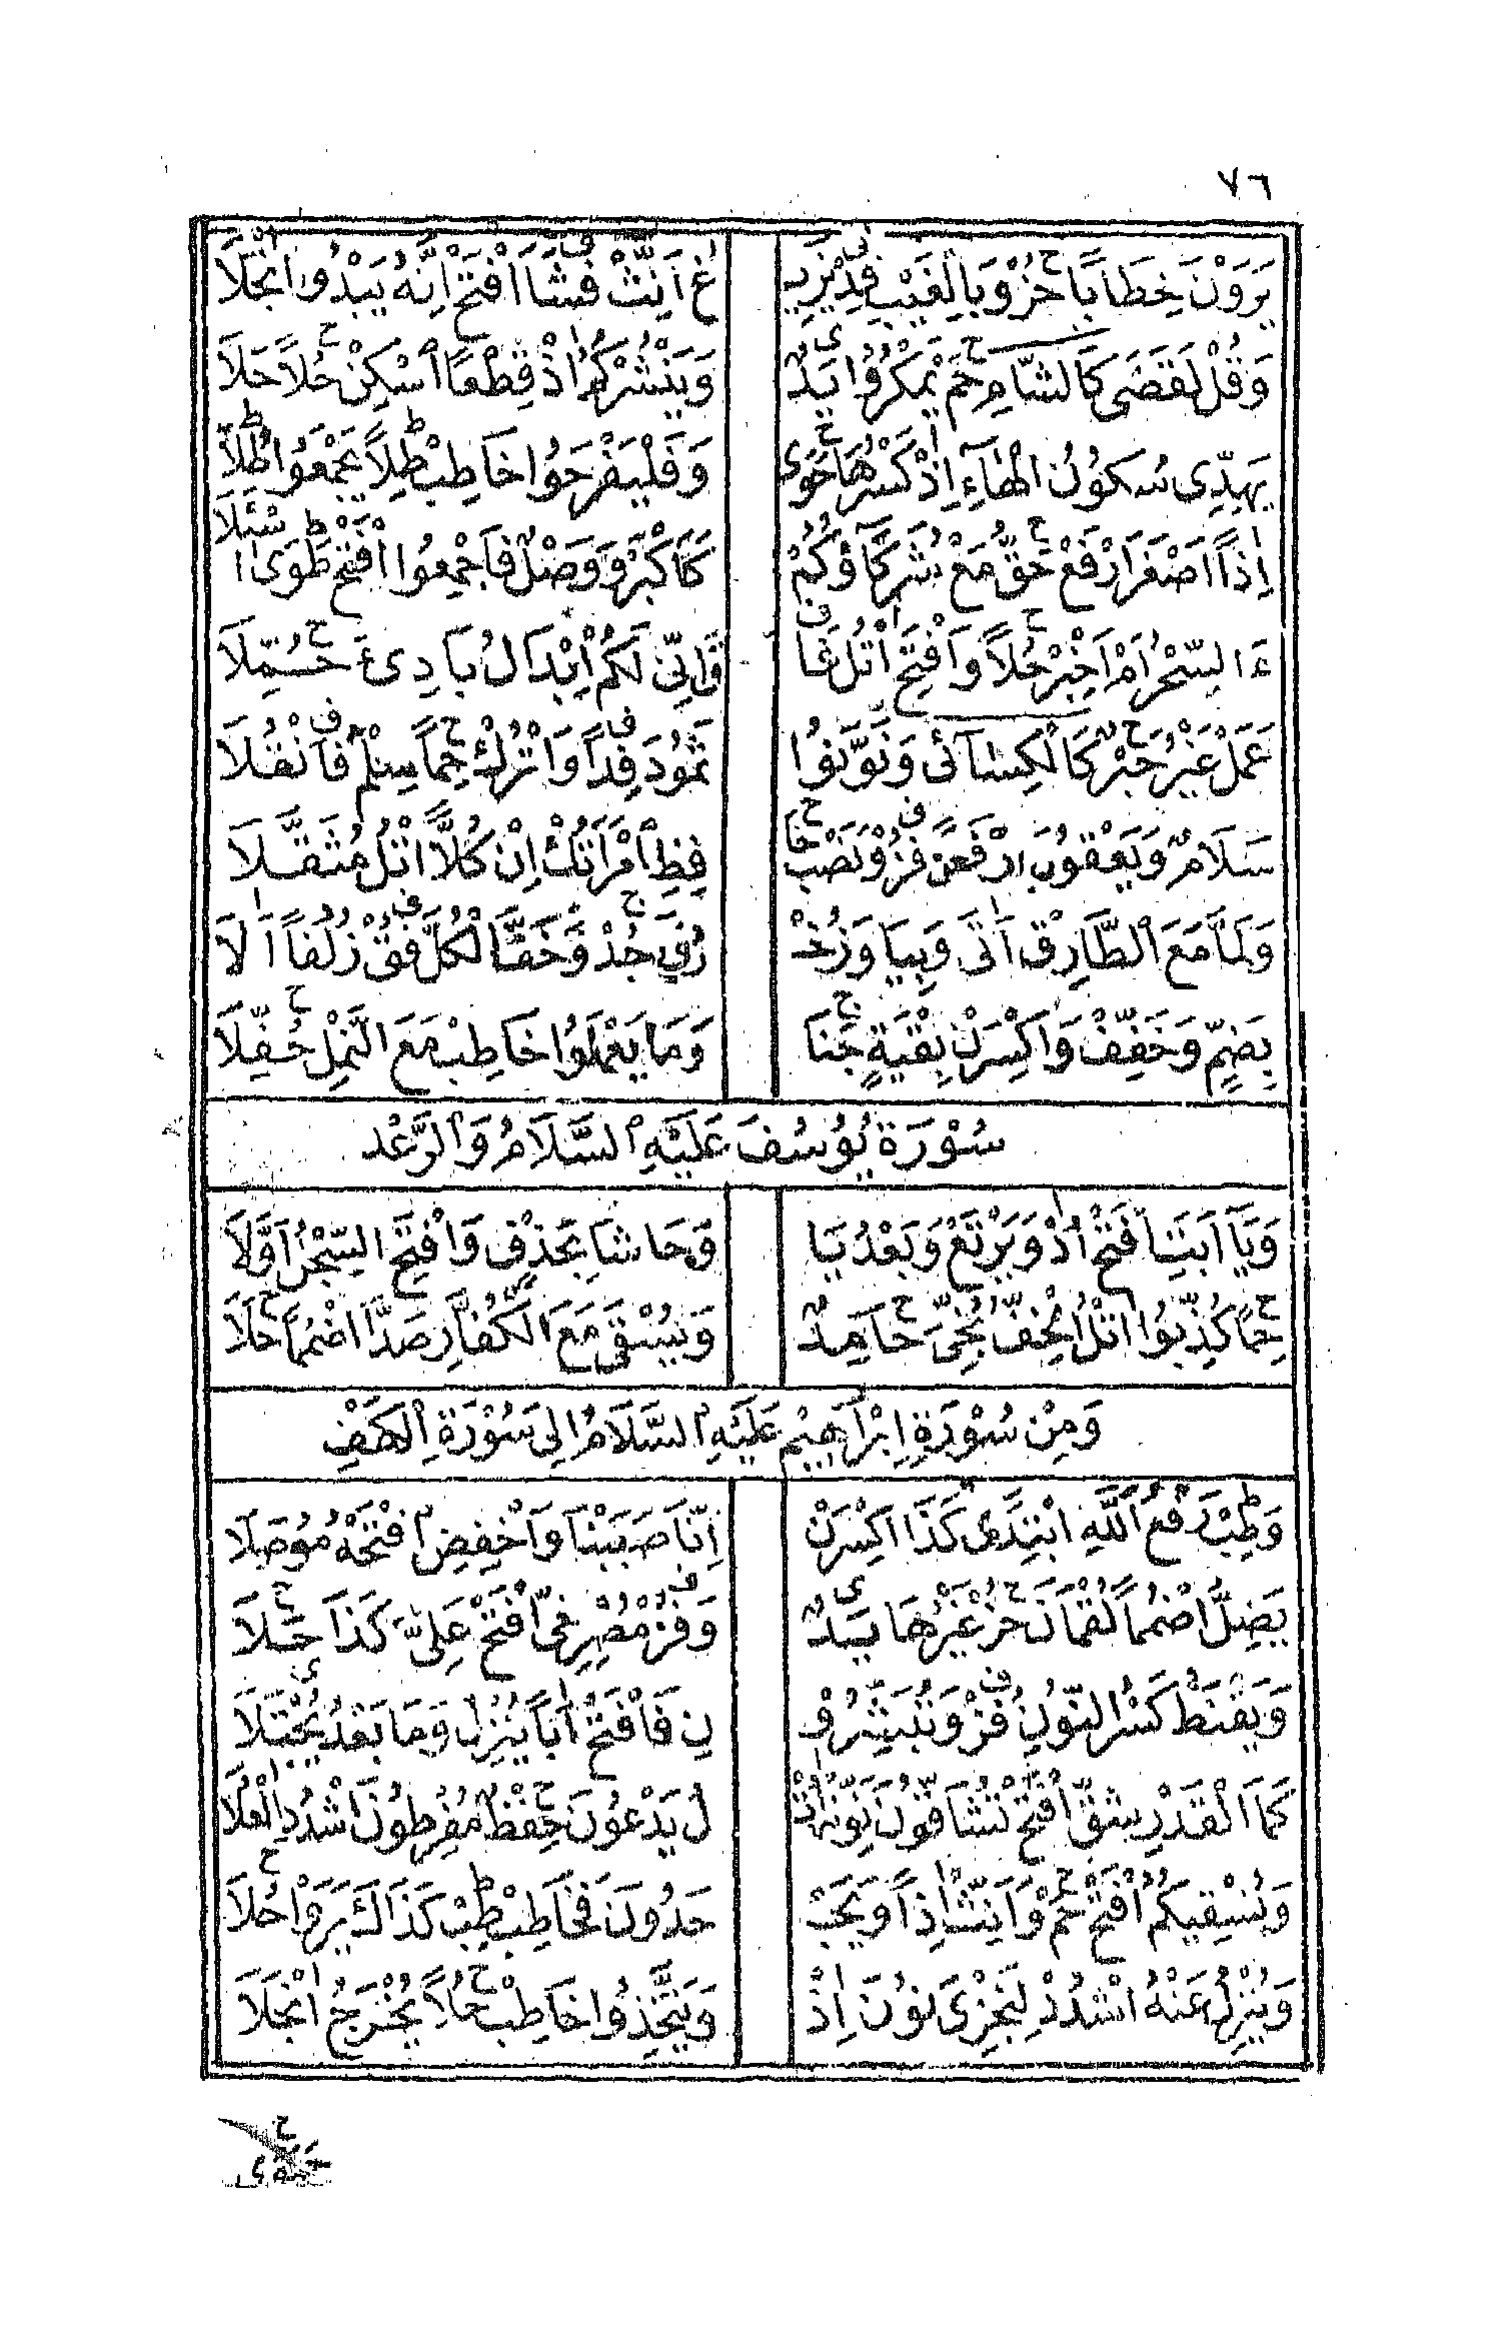 ٧٦
يَرَوْنَ خِطَابًا حُزْ وَبِالْغَيْبِ فِدْ يَزِيـ غُ أَنِّثْ فَشَا افْتَحْ اِنَّهُ يَبْدُوا انْجَلَا
وَقُلْ لَقَضَى كَالشَّامِ حُمْ يَمْكُرُوا يَدٌ وَيَنْشُرُكُمْ اُدْ قِطْعًا اسْكِنْ حُلًا حَلَا
يَهِدِّى سُكُونُ الْهَاءِ اِذْ كَسْرُهَا حَوَى وَفَلْيَفْرَحُوا خَاطِبْ طِلًا يَجْمَعُوا طُلَا
اِذًا اَصْغَرَ ارْفَعْ حَقُّ مَعْ شُرَكَاؤُكُمْ كَأَكْبَرَ وَوَصْلُ فَاجْمِعُوا افْتَحْ طَوَى ا سْئَلَا
ءَالسِّحْرُ اَمْ اَخْبِرْ حُلًا وَافْتَحْ اتْلُ فَا قَ اِنِّى لَكُمْ اِبْدَالُ بَادِئَ حُمِّلَا
عَمَلْ غَيْرُ حَبْرٌ كَالْكِسَائَى وَنَوِّنُوا ثَمُودَ فِدًا وَاتْرُكْ حِمًا سِلْمُ فَانْقُلَا
سَلَامٌ وَيَعْقُوبَ ارْفَعَنْ فُزْ وَنَصْبُ حَا فِظِ امْرَأَتُكْ اِنْ كُلًّا اتْلُ مُثَقَّلَا
وَلَمَّا مَعَ الطَّارِقْ اَتَى وَبِيَا وَزُخْـ رُفِ جُدْ وَخَفَّ الْكُلُّ فُقْ زُلُفًا اَلَا
بِضَمٍّ وَخَفِّفْ وَاكْسِرَنْ بِقْيَةٍ جَنَا وَمَا يَعْمَلُوا خَاطِبْ مَعَ النَّمْلِ حُفِّلَا
سُوْرَةُ يُوسُفَ عَلَيْهِ السَّلَامُ وَالرَّعْد
وَيَآ اَبَتِ افْتَحْ اُدْ وَيَرْتَعْ وَبَعْدُ يَا وَحَاشَا بِحَذْفٍ وَافْتَحِ السِّجْنُ اَوَّلَا
حِمًا كُذِّبُوا اتْلُ الْخِفُّ نُجِّى حَامِدٌ وَيُسْقَى مَعَ الْكُفَّارُ صَدَّ اضْمُمًا حَلَا
وَمِنْ سُوْرَةِ اِبْرَاهِيْمَ عَلَيْهِ السَّلَامُ اِلَى سُوْرَةِ الْكَهْفِ
وَطِبْ رَفْعُ اللّٰهِ ابْتِدًى كَذَا اكْسِرَنْ اِنَّا صَبَبْنَا وَاخْفِضِ افْتَحْهُ مُوصَلَا
يَضِلُّ اضْمُمًا لُقْمَانَ حُزْ غَيْرُهَا يَدٌ وَفُزْ مُصْرِخِىَّ افْتَحْ عَلِىٌّ كَذَا حَلَا
وَيَقْنَطْ كَسْرُ النُّونِ فُزْ وَتُبَشِّرُوْ نِ فَافْتَحْ اَبًا يُنْزِلُ وَمَا بَعْدُ يُجْتَلَا
كَمَا الْقَدْرِ شِقُّ افْتَحْ تُشَاقُّونَ نُونَهُ اتْـ لُ يَدْعُونَ حِفْظٌ مُفْرِطُونَ اشْدُدِ الْعُلَا
وَنُسْقِيكُمُ افْتَحْ حُمْ وَاَنِّثْ اِذًا وَيَجْـ حَدُونَ فَخَاطِبْ طِبْ كَذَاكَ يَرَوْا حُلَا
وَيُنْزِلُ عَنْهُ اشْدُدْ لِيَجْزِىَ نُونَ اِذْ وَيَتَّخِذُوا خَاطِبْ حُلًا يُخْرَجُ انْجَلَا
حَوَى